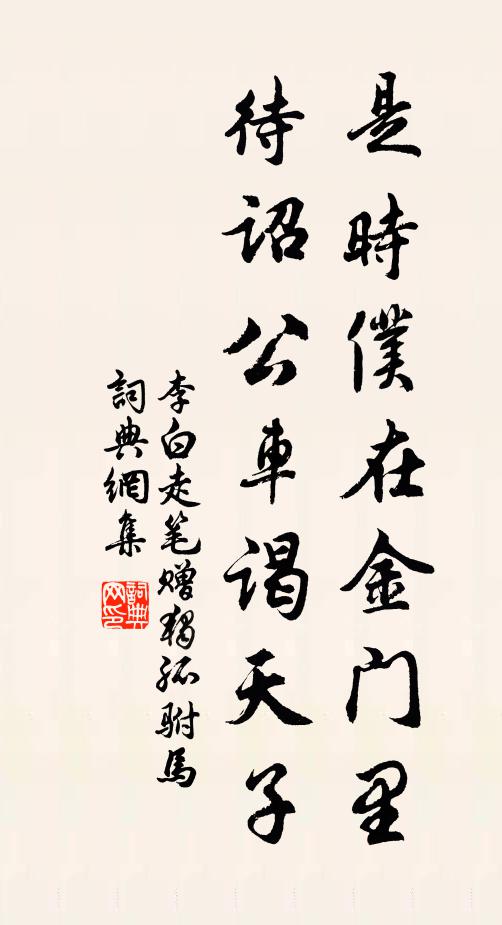 是時僕在金門里
待詔公車謁天子
李白走笔赠獨孤駙馬
詞典網集
詞典网印